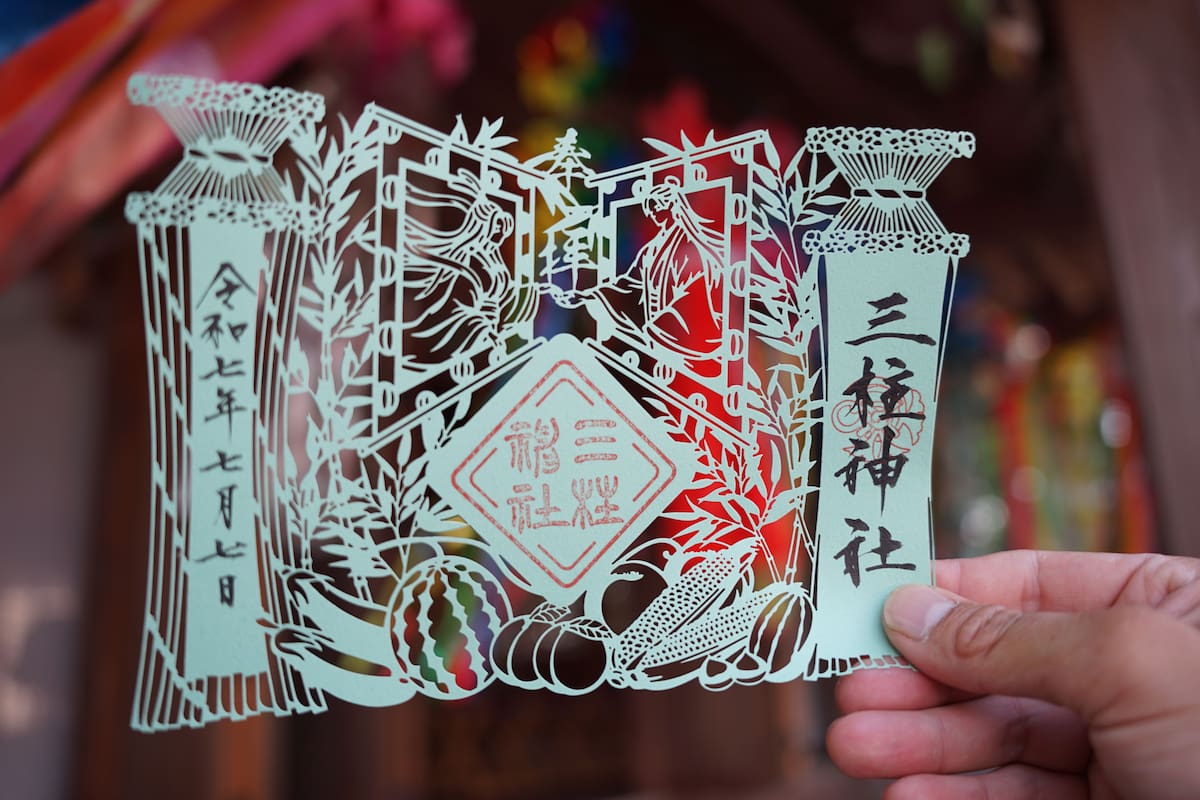 奉拝
三柱神社
三柱
神社
令和七年七月七日